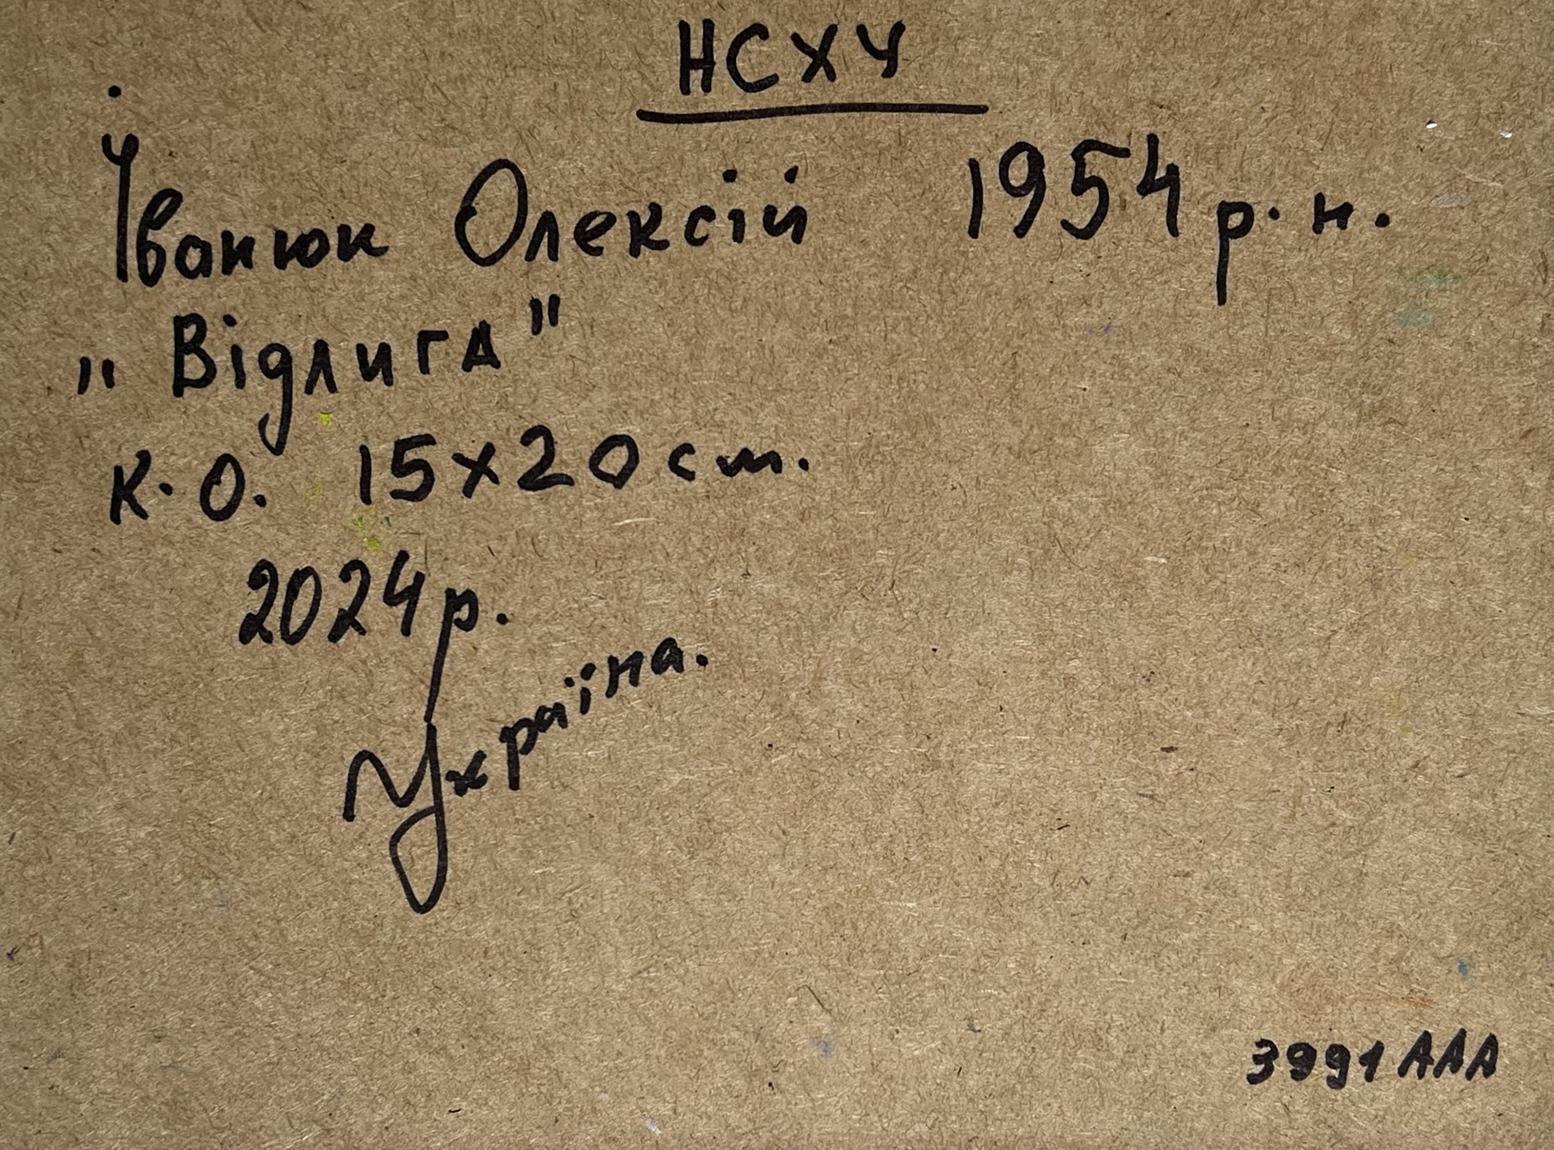 НСХУ
Іванюк Олексій 1954 р. н.
"Відлига"
к. о. 15х20 см.
2024 р.
Україна.
3991 ААА